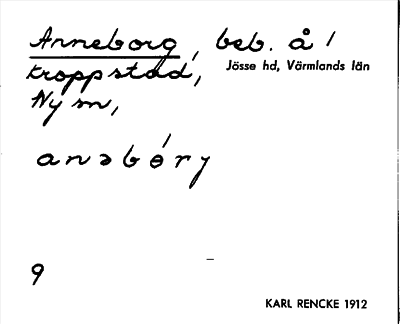 Anneborg, beb. å /
Kroppstad,
Jösse hd, Värmlands län
Ny sn,
anəbórj
9
KARL RENCKE 1912